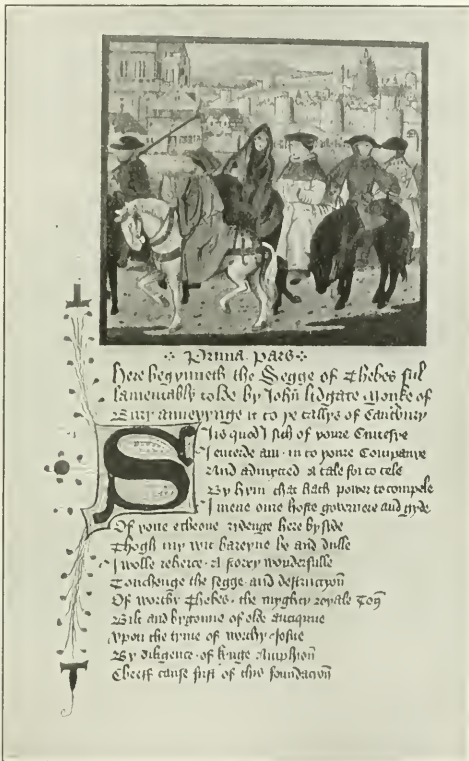 Prima pars
Here begynneth the Segge of Thebes ful
lamentably tolde by John lidgate Monke of
Bury anneyynge it to þe tallys of Caunbury
Sirs quod I sith of youre Curtesye
I entrede am in to youre Companye
And admytted a tale for to tele
By hym that hath power to compele
I mene oure hoste governere and gyde
Of yone echeone ridenge here by side
Thogh my wit bareyne be and dulle
I wolle reherce a story wonderfulle
Touchenge the segge and destruccyon
Of worthy Thebes the myghty royale Ton
Bilt and bygonne of olde antiquite
Vpon the tyme of worthy Josue
By diligence of kynge Amphion
Cheeff cause first of this foundacion